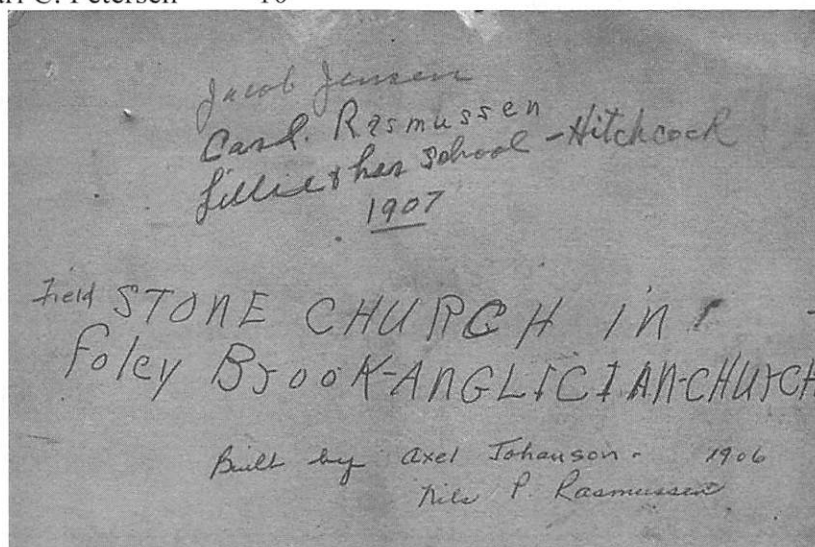 C. Petersen 10
Jacob Jensen
Carl. Rasmussen
Lillie & her school - Hitchcock
1907
Field STONE CHURCH in
Foley Brook-ANGLICIAN-CHURCH
Built by Axel Johanson - 1906
Nils P. Rasmussen